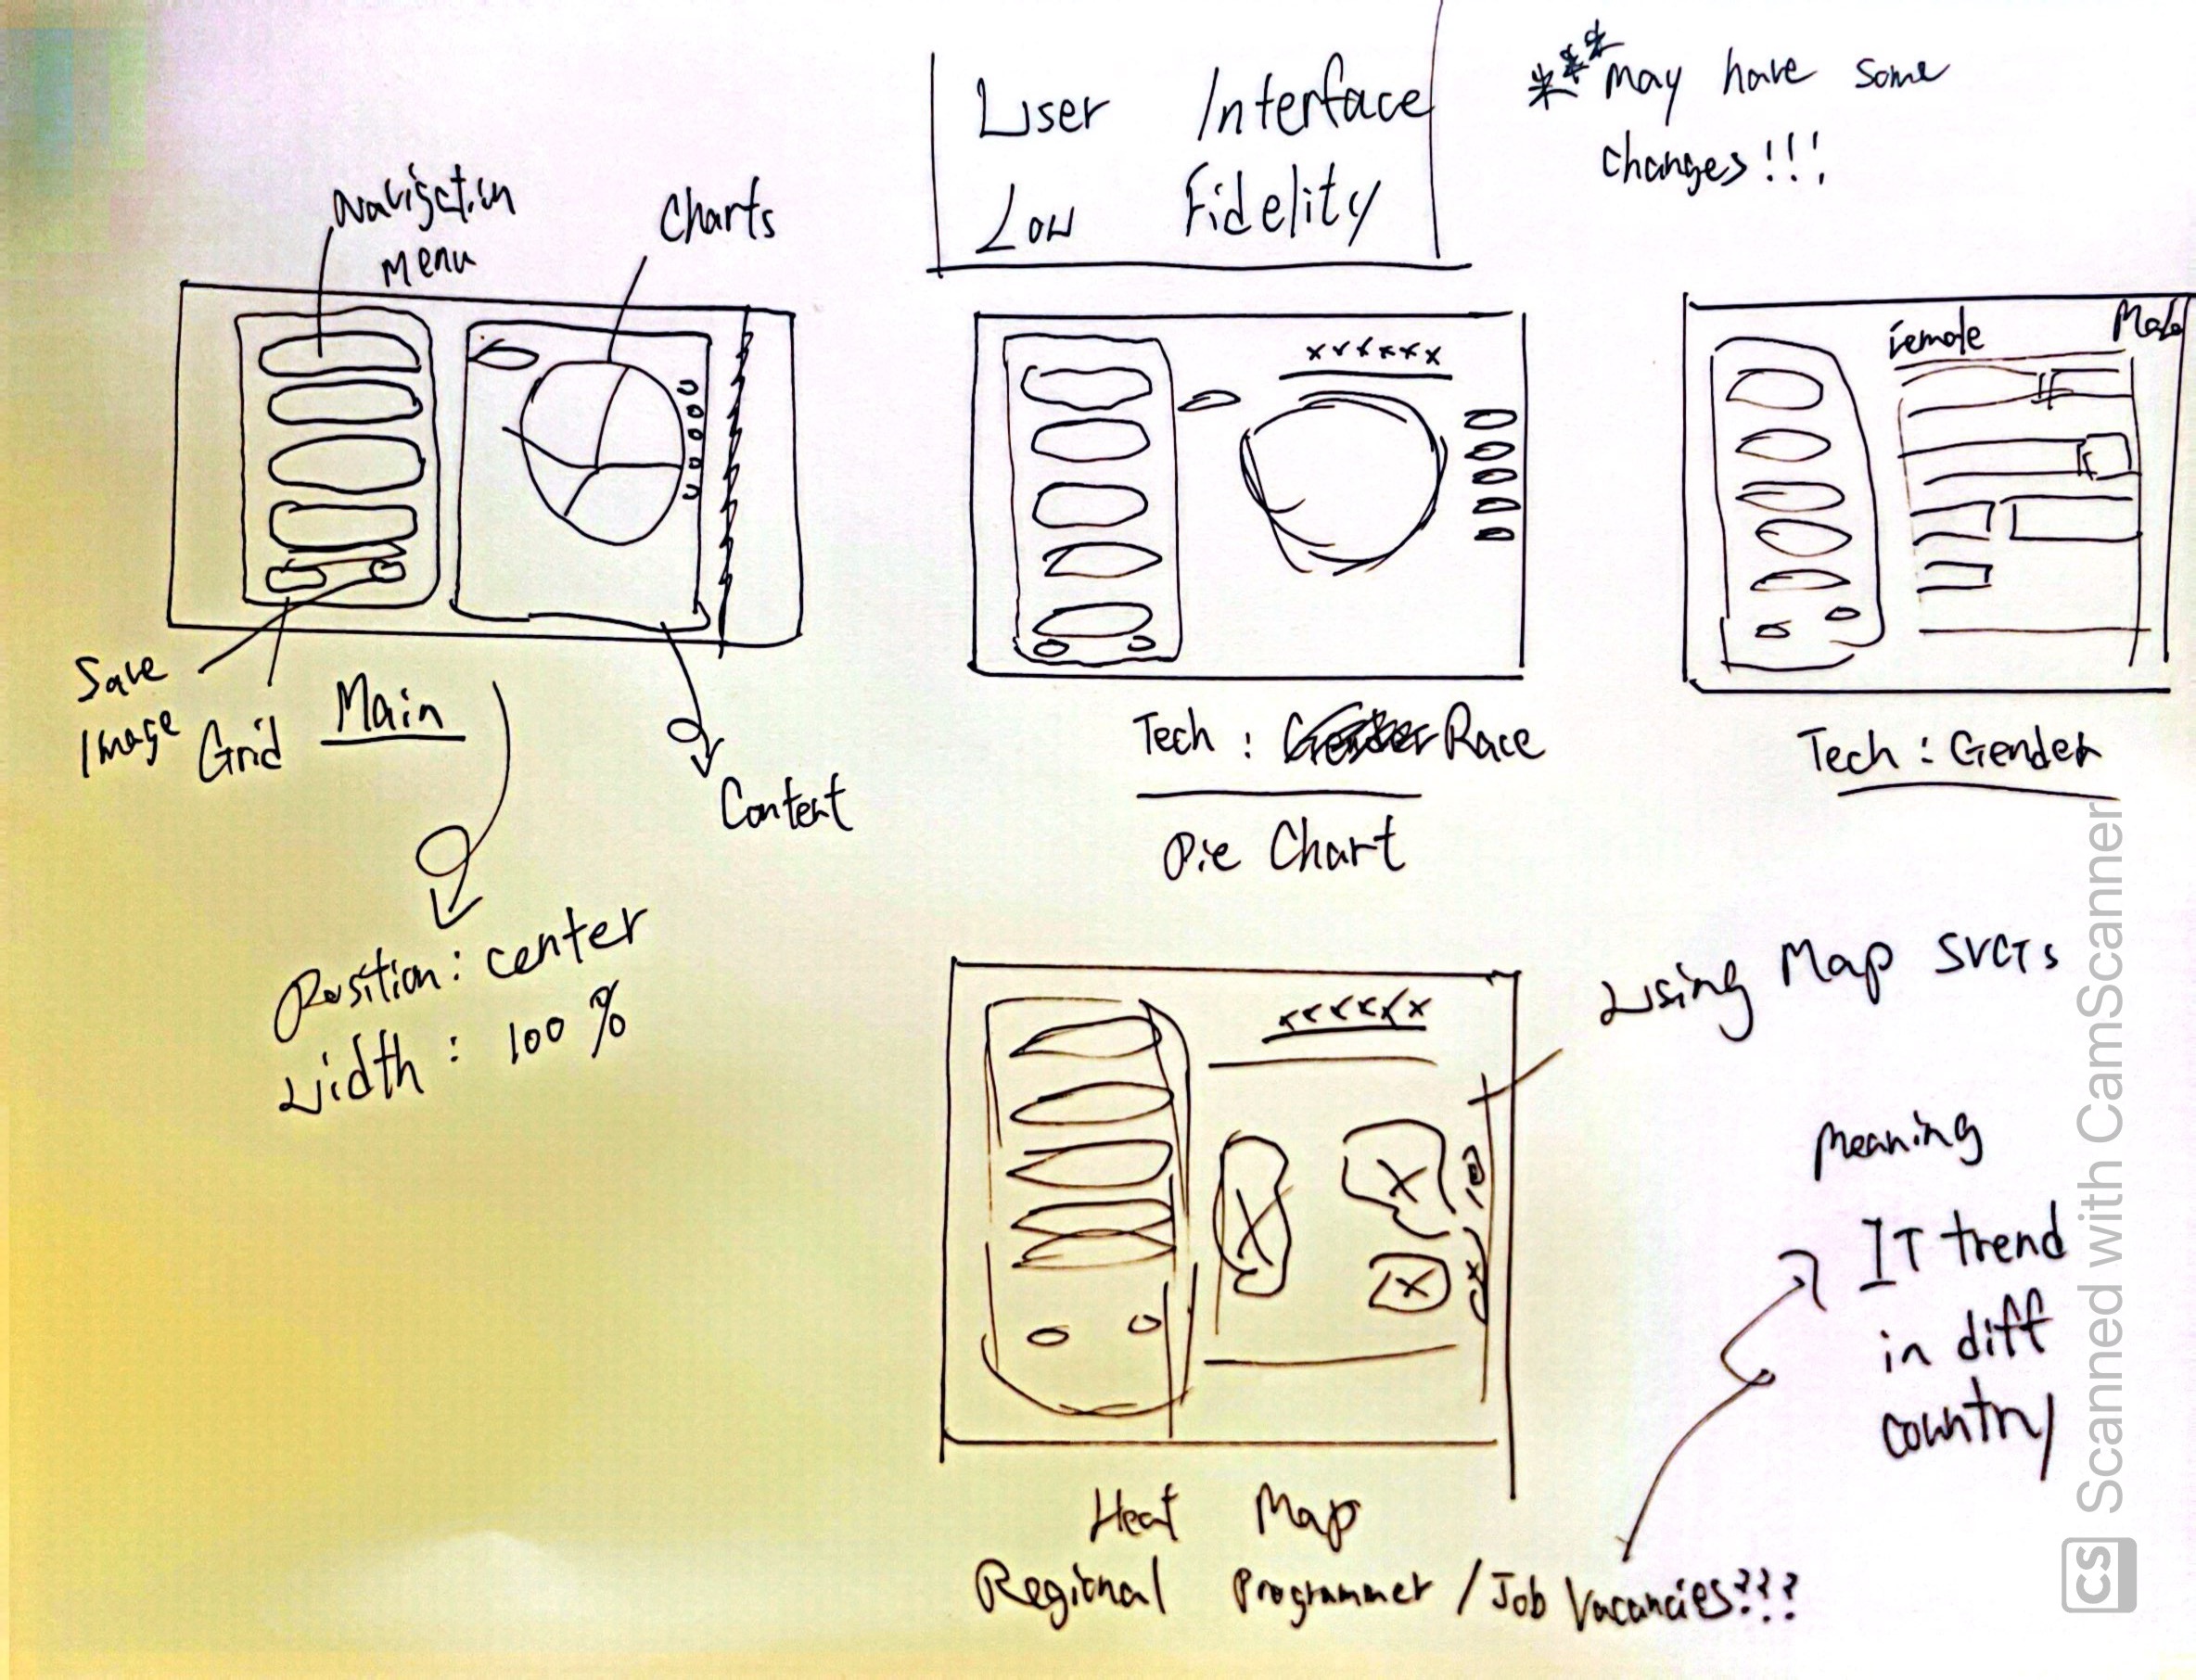 User Interface
Low Fidelity
*** May have some
changes!!!
Navigation
Menu
Charts
Save
Image
Grid
Main
Content
Position: center
Width: 100 %
xxxxxx
Tech: Race
Pie Chart
Female Male
Tech: Gender
xxxxxx
Using Map SVGs
Heat Map
Regional Programmer / Job Vacancies???
Meaning
IT trend
in diff
country
CS Scanned with CamScanner